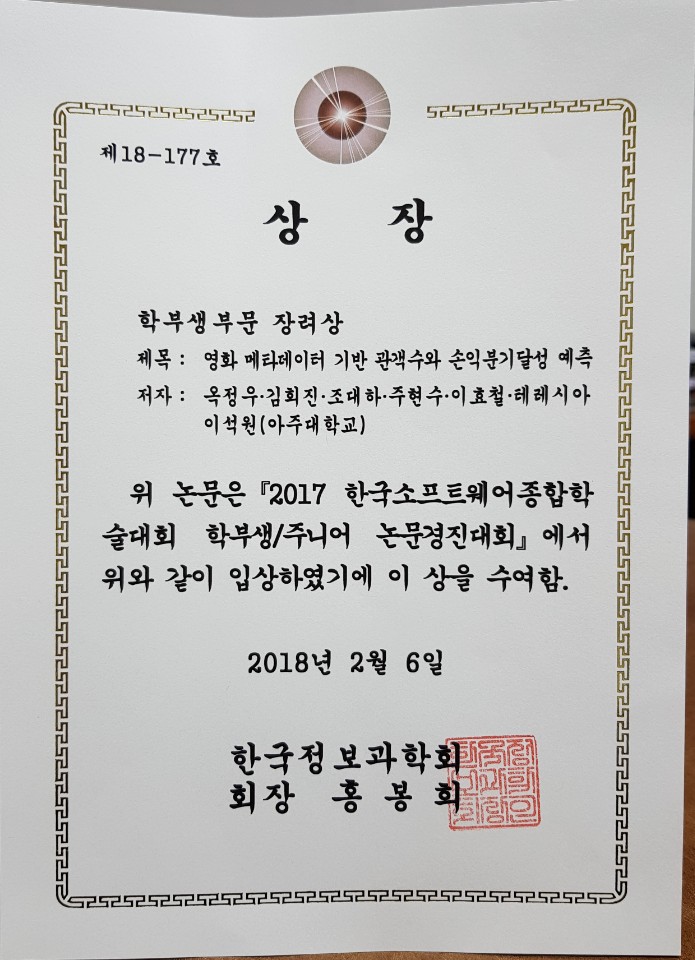 제18-177호
상 장
학부생부문 장려상
제목 : 영화 메타데이터 기반 관객수와 손익분기달성 예측
저자 : 옥정우·김희진·조대하·주현수·이효철·테레시아
이석원(아주대학교)
위 논문은 『2017 한국소프트웨어종합학
술대회 학부생/주니어 논문경진대회』에서
위와 같이 입상하였기에 이 상을 수여함.
2018년 2월 6일
한국정보과학회
회장 홍봉희